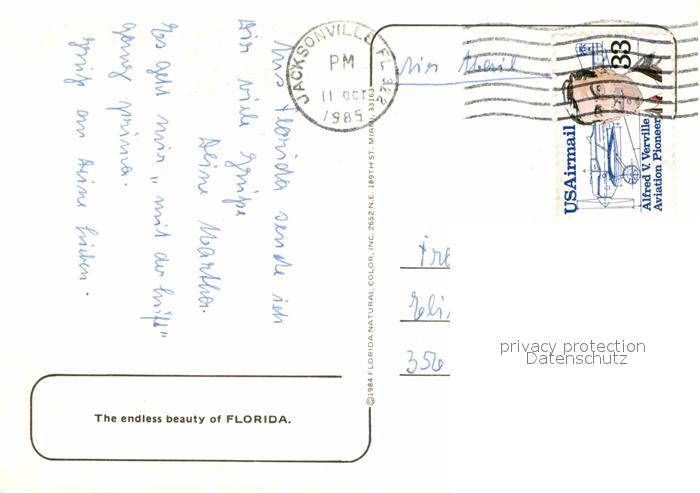 Aus Florida sende ich
Dir viele Grüße
Deine Martha.
Es geht mir "mit der Hüfte"
ganz prima.
Grüß an Deine Lieben.
JACKSONVILLE FL 322
PM
11 OCT
1985
Air Mail
USAirmail
33
Alfred V. Verville
Aviation Pioneer
©1984 FLORIDA NATURAL COLOR, INC. 2652 N.E. 189TH ST. MIAMI, 33163
356
privacy protection
Datenschutz
The endless beauty of FLORIDA.